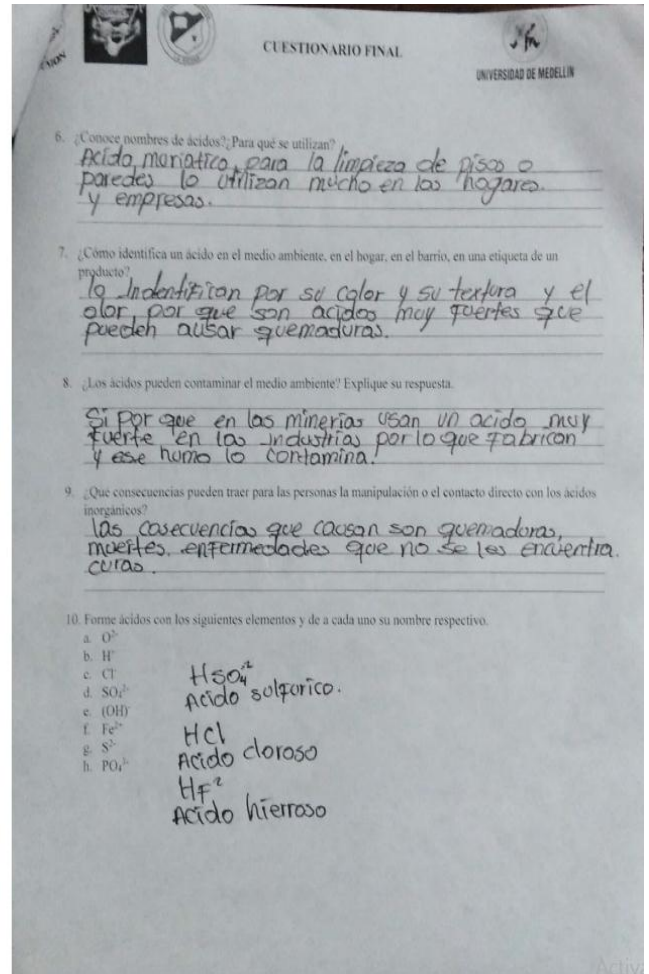 CUESTIONARIO FINAL
UNIVERSIDAD DE MEDELLÍN
6. ¿Conoce nombres de ácidos?¿Para qué se utilizan?
Acido, moriatico, para la limpieza de pisos o
paredes lo utilizan mucho en los hogares.
y empresas.
7. ¿Cómo identifica un ácido en el medio ambiente, en el hogar, en el barrio, en una etiqueta de un
producto?
lo Indentifican por su color y su textura y el
olor, por que son acidos muy fuertes que
pueden ausar quemaduras.
8. ¿Los ácidos pueden contaminar el medio ambiente? Explique su respuesta.
Si por que en las minerias usan un acido muy
fuerte en las industrias por lo que fabrican
y ese humo lo contamina.
9. ¿Que consecuencias pueden traer para las personas la manipulación o el contacto directo con los ácidos
inorgánicos?
las casecuencias que causan son quemaduras,
muertes, enfermedades que no se les encuentra.
curas.
10. Forme ácidos con los siguientes elementos y de a cada uno su nombre respectivo.
a. O²⁻
b. H⁺
c. Cl⁻
d. SO₄²⁻
e. (OH)⁻
f. Fe²⁺
g. S²⁻
h. PO₄³⁻
HSO₄⁻²
Acido sulforico.
HCl
Acido cloroso
HF²
Acido hierroso